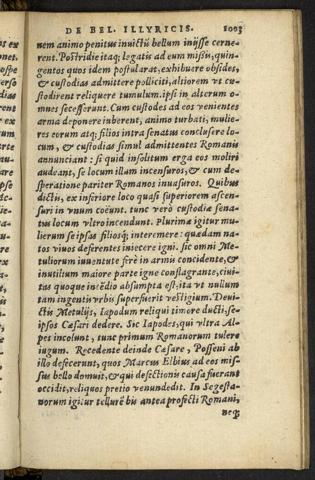 DE BEL. ILLYRICIS. 1003
nem animo penitus inuictū bellum inijsse cerne-
rent. Postridie itaq; legatis ad eum missis, quin-
gentos quos idem postularat, exhibuere obsides,
& custodias admittere polliciti, altiorem vt cu-
stodirent reliquere tumulum. ipsi in alterum o-
mnes secefferunt. Cum custodes ad eos venientes
arma deponere iuberent, animo turbati, mulie-
res eorum atq; filios intra senatus conclusere lo-
cum, & custodias simul admittentes Romanis
annunciant : si quid insolitum erga eos moliri
audeant, se locum illam incensuros, & cum de-
speratione pariter Romanos inuasuros. Quibus
dictis, ex inferiore loco quasi superiorem ascen-
suri in vnum coëunt. tunc verò custodiæ sena-
tus locum vltro incendunt. Plurimæ igitur mu-
lierum se ipsas filiosq; interemere: quædam na-
tos viuos deferentes iniecere igni. sic omni Me-
tuliorum iuuentute ferè in armis concidente, &
inutilium maiore parte igne conflagrante, ciui-
tas quoque incēdio absumpta est: ita vt nullum
tam ingentis vrbis superfuerit vestigium. Deui-
ctis Metulijs, Iapodum reliqui timore ducti, se-
ipsos Cæsari dedere. Sic Iapodes, qui vltra Al-
pes incolunt, tunc primum Romanorum tulere
iugum. Recedente deinde Cæsare, Posseni ab
illo defecerunt, quos Marcus Elbius ad eos mis-
sus bello domuit, & qui defectionis causa fuerant
occidit, reliquos pretio venundedit. In Segesta-
norum igitur tellurē bis antea profecti Romani,
neq;